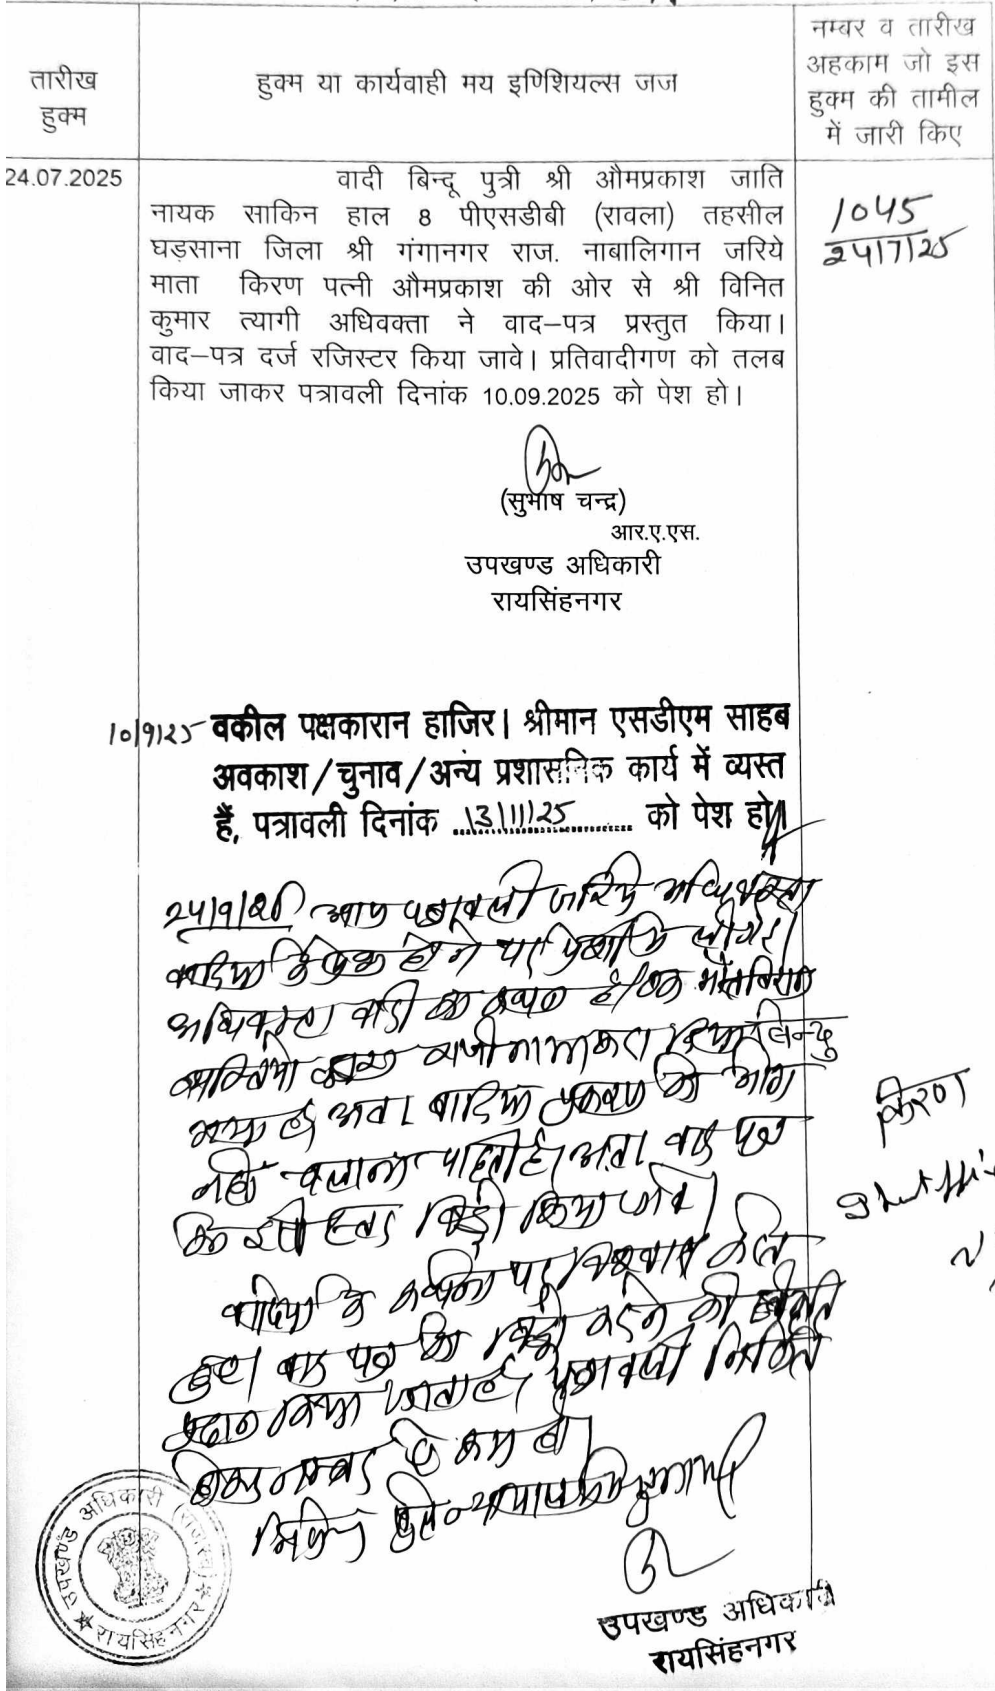 नम्बर व तारीख
अहकाम जो इस
हुक्म की तामील
में जारी किए
तारीख
हुक्म
हुक्म या कार्यवाही मय इणिशियल्स जज
24.07.2025
वादी बिन्दू पुत्री श्री औमप्रकाश जाति
नायक साकिन हाल 8 पीएसडीबी (रावला) तहसील
घड़साना जिला श्री गंगानगर राज. नाबालिगान जरिये
माता किरण पत्नी औमप्रकाश की ओर से श्री विनित
कुमार त्यागी अधिवक्ता ने वाद–पत्र प्रस्तुत किया।
वाद–पत्र दर्ज रजिस्टर किया जावे। प्रतिवादीगण को तलब
किया जाकर पत्रावली दिनांक 10.09.2025 को पेश हो।
1045
24/7/25
(सुभाष चन्द्र)
आर.ए.एस.
उपखण्ड अधिकारी
रायसिंहनगर
10/9/25 वकील पक्षकारान हाजिर। श्रीमान एसडीएम साहब
अवकाश/चुनाव/अन्य प्रशासनिक कार्य में व्यस्त
हैं, पत्रावली दिनांक 13/11/25 को पेश हो।
आज पत्रावली जरिये अधिवक्ता
वादिया के पेश होने पर
अधिवक्ता वादी का कथन है कि
राजीनामा कर लिया
गया है। अतः वादिया प्रकरण को आगे
नहीं चलाना चाहती है। अतः वाद पत्र
को इसी स्तर विड्रो किया जावे।
वादिया के कथनों पर विश्वास करते
हुए वाद पत्र को विड्रो करने की
प्रदान किया जाता है। पत्रावली
नम्बर से कम हो।
किरण
उपखण्ड अधिकारी
रायसिंहनगर
उपखण्ड अधिकारी (राजस्व)
रायसिंहनगर